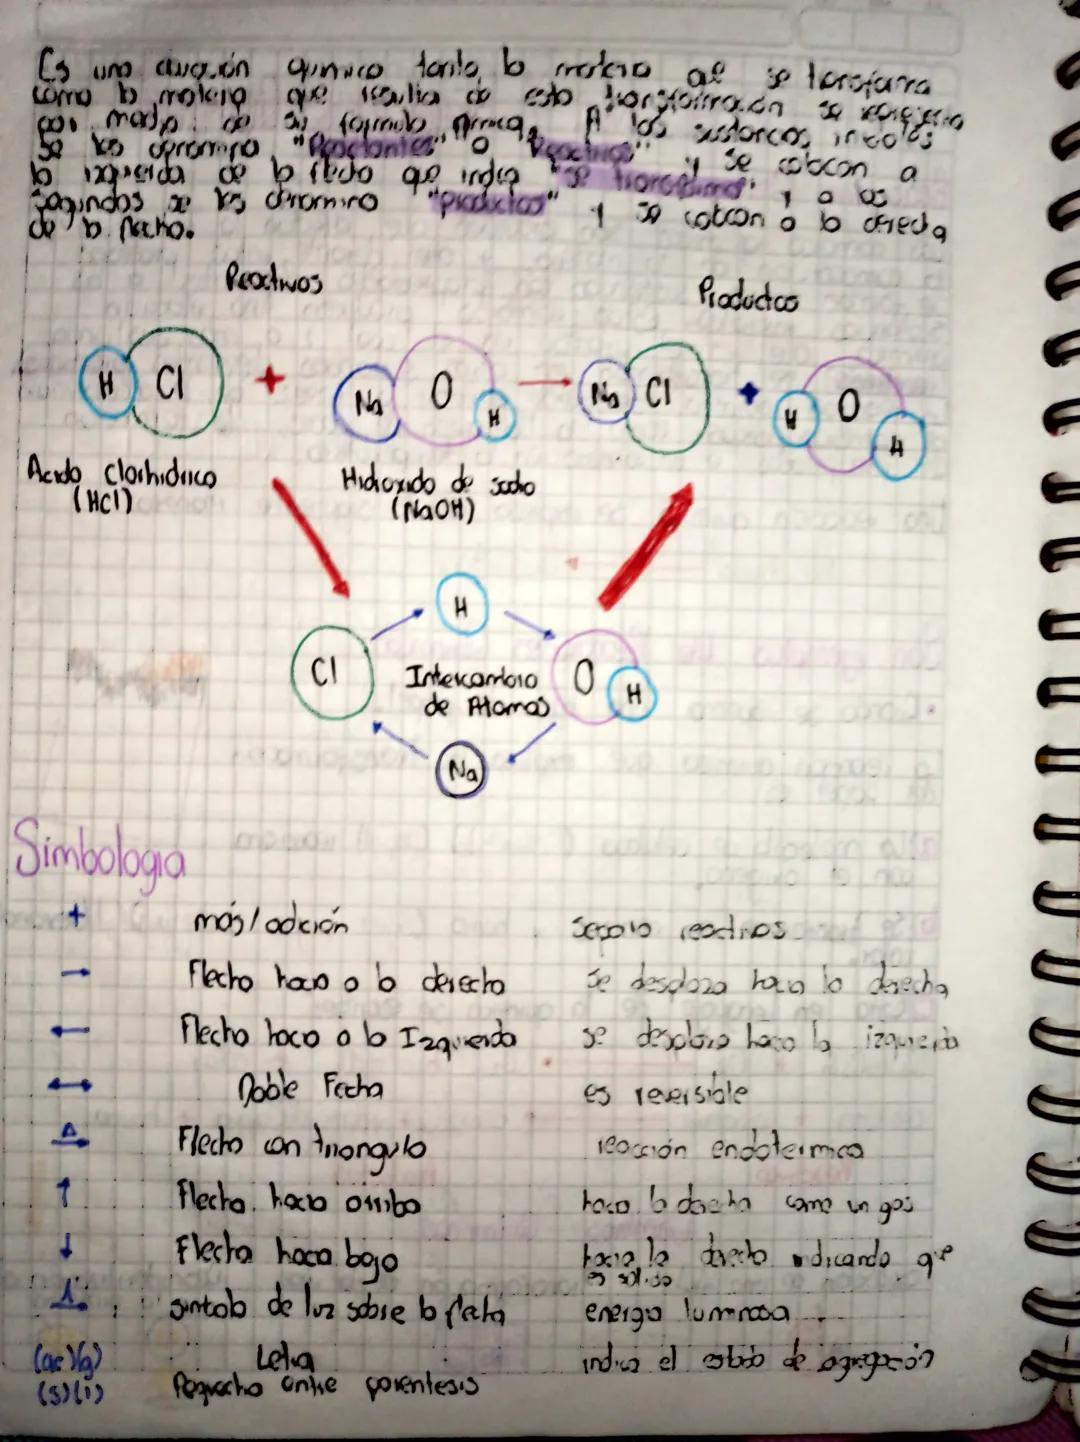 Es una ecuación química tanto la materia al se transforma
como la materia que resulta de esta transformación se representa
por medio de su formula química. A las sustancias
se les denomina "Reactantes" o "Reactivos" y se colocan a
la izquierda de la flecha que indica "se transforma" y a las
segundas se les denomina "productos" y se colocan a la derecha
de la flecha.
Reactivos Productos
H Cl + Na O H → Na Cl + H O H
Acido Clorhidrico Hidroxido de sodio
(HCl) (NaOH)
H
Cl Intercambio O H
de Atomos
Na
Simbologia
+ más/adición Separa reactivos
→ Flecha hacia a la derecha Se desplaza hacia la derecha
← Flecha hacia a la Izquierda se desplaza hacia la izquierda
↔ Doble Fecha es reversible
Δ→ Flecha con triangulo reacción endotermica
↑ Flecha hacia arriba hacia la derecha como un gas
↓ Flecha hacia bajo hacia la derecha indicando que
es solido
simbolo de luz sobre la flecha energia luminosa
(ac)(g) Letra indica el estado de agregación
(s)(l) Pequeña entre parentesis